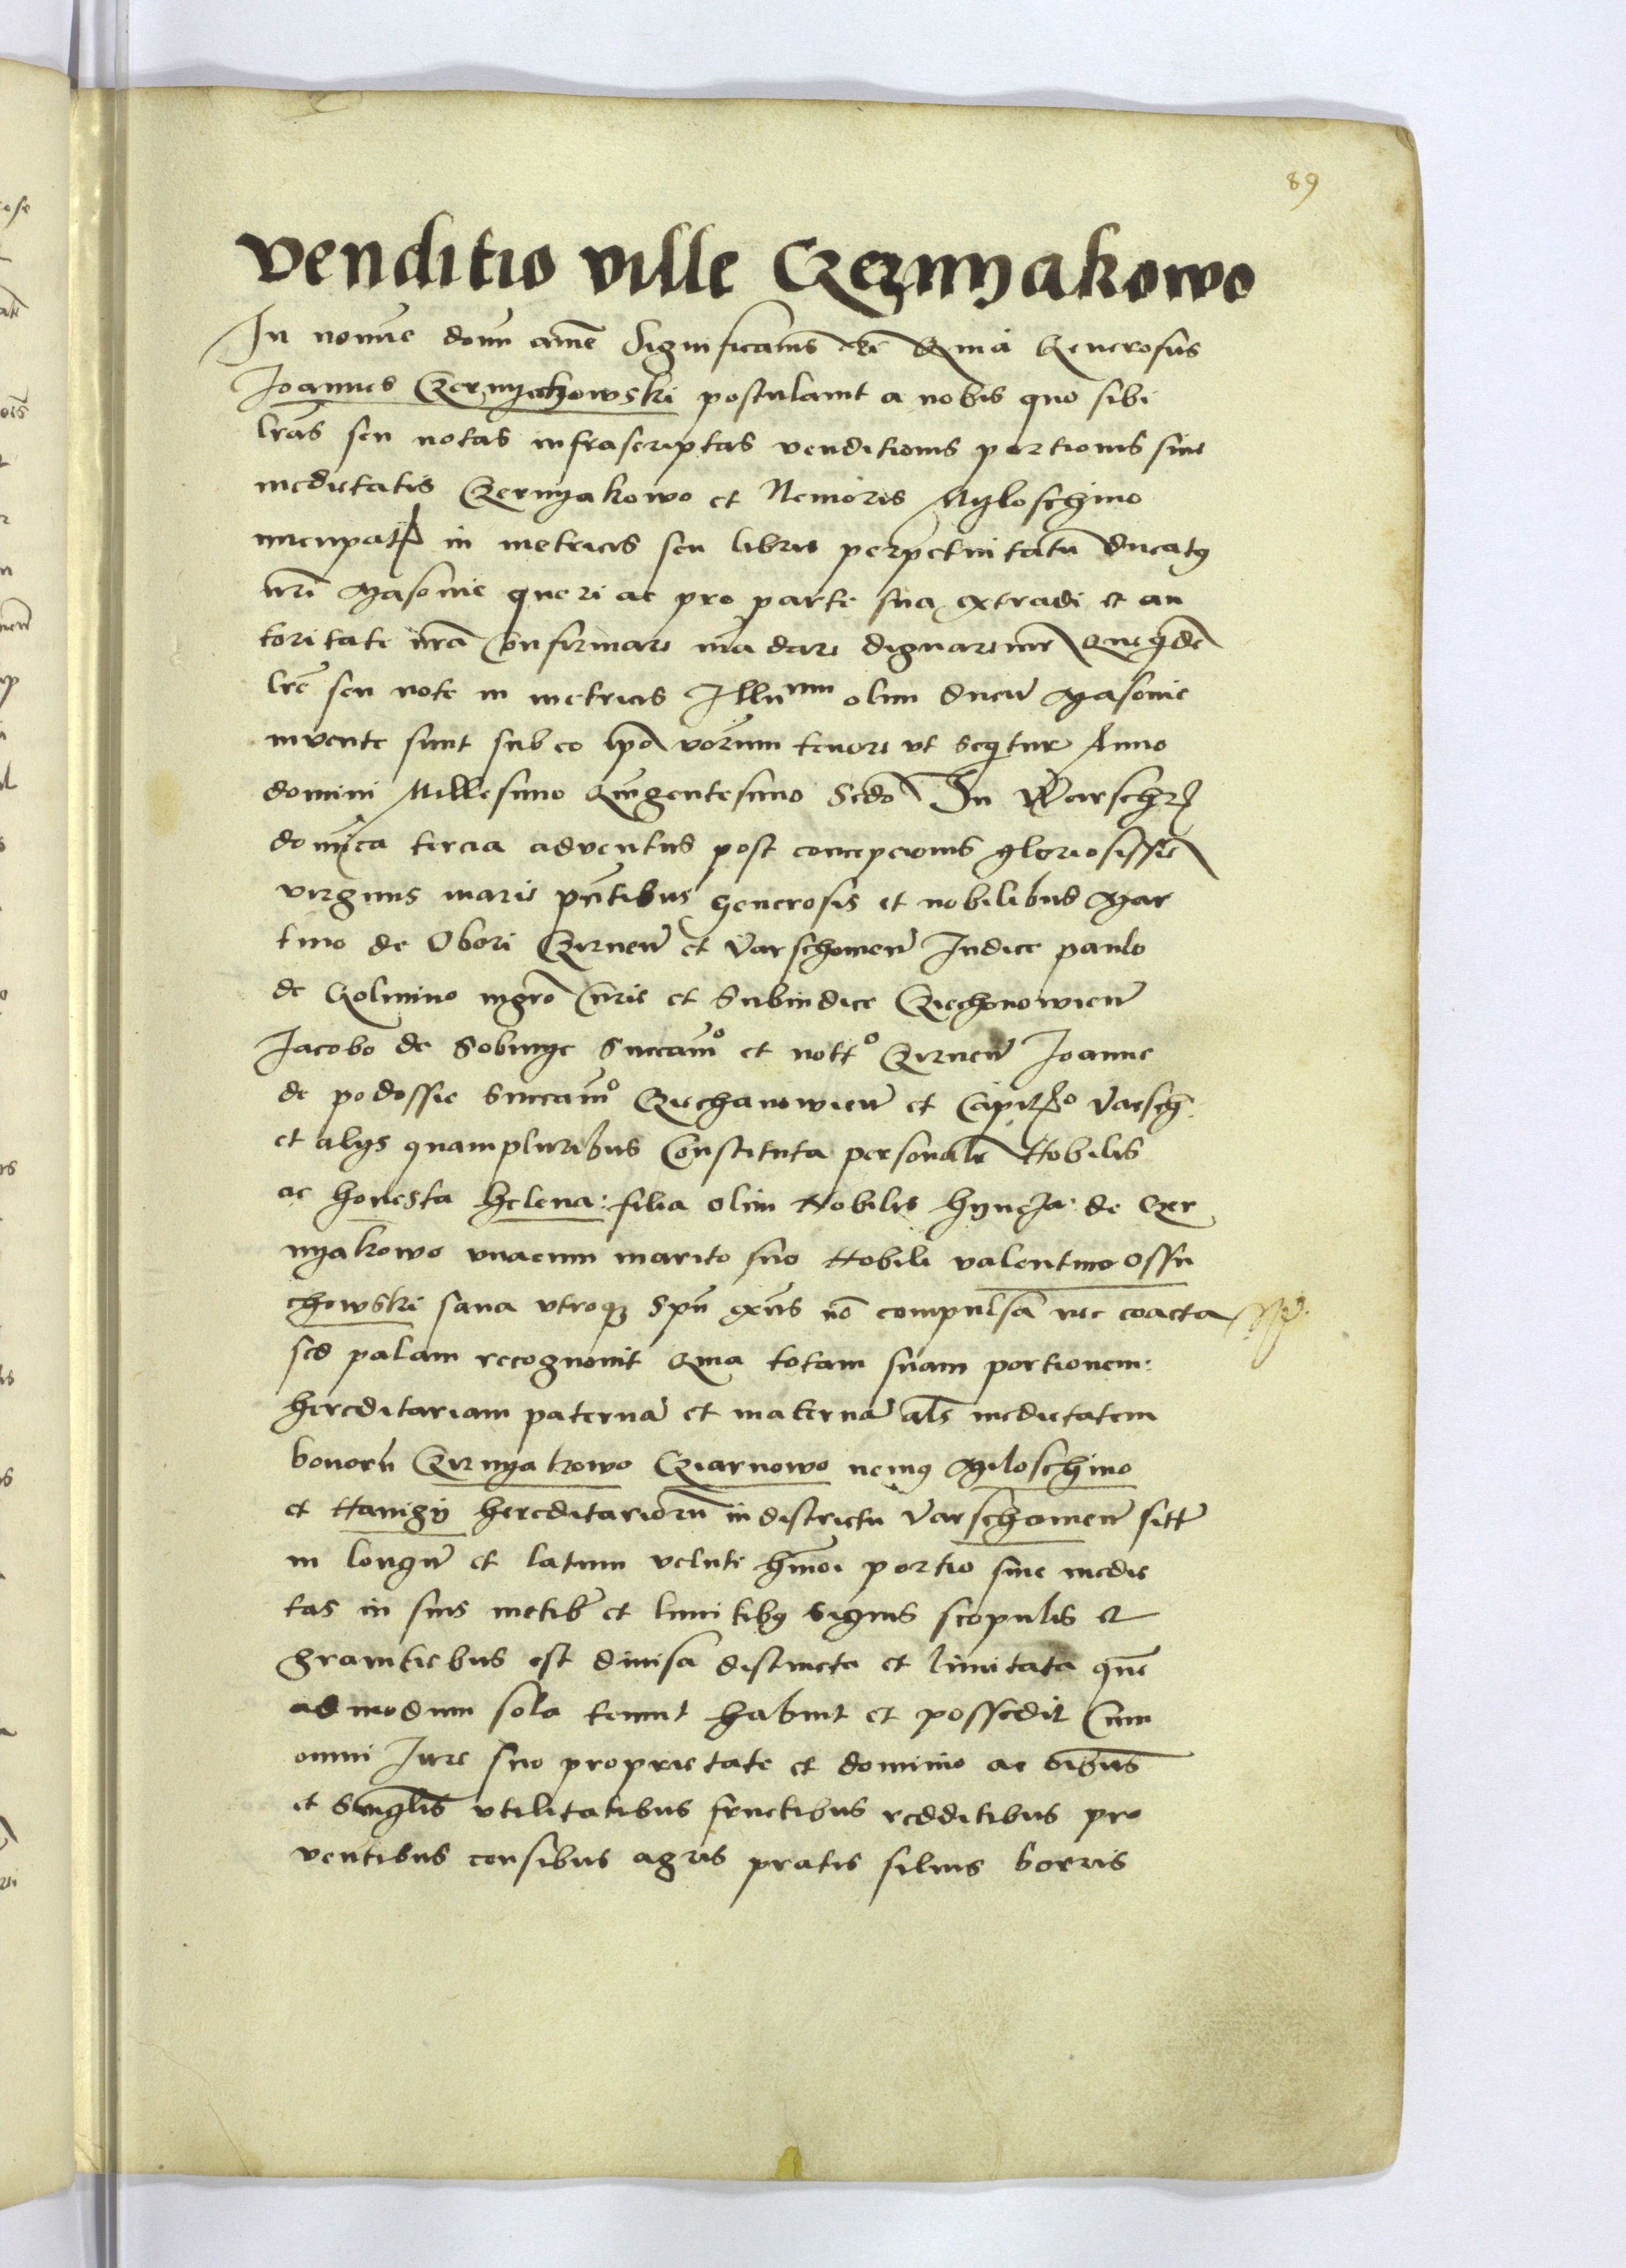 89
Venditio ville Czernyakowo
In no͞ie domi͞ ame͞ Significam͞s etc͞ Quia Generosus
Joannes Czernyechowski postulavit a nobis quo͞ sibi
l͞ras seu notas infrascriptas venditionis portionis sive
medietatis Czernyakowo et Nemoris Myloschino
nuncupat͞ in metricis seu libris perpetuitatu͞ ducatus
n͞ri Masovie queri ac pro parte sua extradi et au
toritate n͞ra Confirmari ma͞dare dignaremur Queq͞de͞
l͞re seu note in metricis Illu͞ olim ducu͞ Masovie
invente sunt sub eo ip͞o verborum tenore ut sequitur Anno
domini Millesimo Quingentesimo Sc͞do In Warsch͞
dominica tercia adventus post concepcionis gloriosissi͞e
virginis marie pn͞tibus generosis et nobilibus Mar
tino de Obori Czirnen͞ et Varschovien͞ Judice paulo
de Golmino mg͞ro Curie et Subiudice Cziechonowien͞
Jacobo de Sobinye Succam͞o et nott͞o Czirnen͞ Joanne
de podossie Succam͞o Cziechanowien͞ et Capit͞o Varsch͞
et alys quampluribus Constituta personal͞r Nobilis
ac honesta helena: filia olim Nobilis hyncza: de Czer
nyakowo unacum marito suo Nobili valentino Ossu
chowski sana utroque sp͞u ex͞ns no͞ compulsa nec coacta
sed palam recognovit Quia totam suam portionem:
hereditariam paterna͞ et materna͞ al͞s medietatem
bonoru͞ Czirnyakowo Cziarnowo nemus Miloschino
et hereditarioru͞ in districtu Varschovien͞ sitt͞
in longu͞ et latum velute h͞moi portio sive medie
tas in suis metib͞ et limitibus signis scopulis et
graniciebus est divisa distincta et limitata que͞
admodum sola tenuit habuit et possedit Cum
omni Jure suo proprietate et dominio ac o͞ibus
et Sing͞lis utilitatibus fructibus redditibus pro
ventibus censibus agris pratis silvis borris